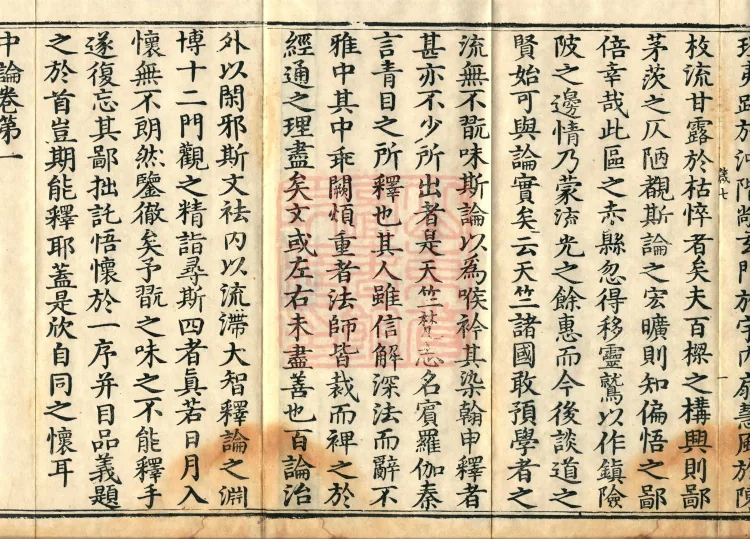 夷路於沖階敞玄門於宇內扇慧風於陳
枝流甘露於枯悴者矣夫百樑之構興則鄙
茅茨之仄陋覩斯論之宏曠則知偏悟之鄙
倍幸哉此區之赤縣忽得移靈鷲以作鎮險
陂之邊情乃蒙流光之餘惠而今後談道之
賢始可與論實矣云天竺諸國敢預學者之
流無不翫味斯論以爲喉衿其染翰申釋者
甚亦不少所出者是天竺梵志名賓羅伽秦
言青目之所釋也其人雖信解深法而辭不
雅中其中乖闕煩重者法師皆裁而裨之於
經通之理盡矣文或左右未盡善也百論治
外以閑邪斯文祛內以流滯大智釋論之淵
博十二門觀之精詣尋斯四者眞若日月入
懷無不朗然鑒徹矣予翫之味之不能釋手
遂復忘其鄙拙託悟懷於一序并目品義題
之於首豈期能釋耶蓋是欣自同之懷耳
中論卷第一